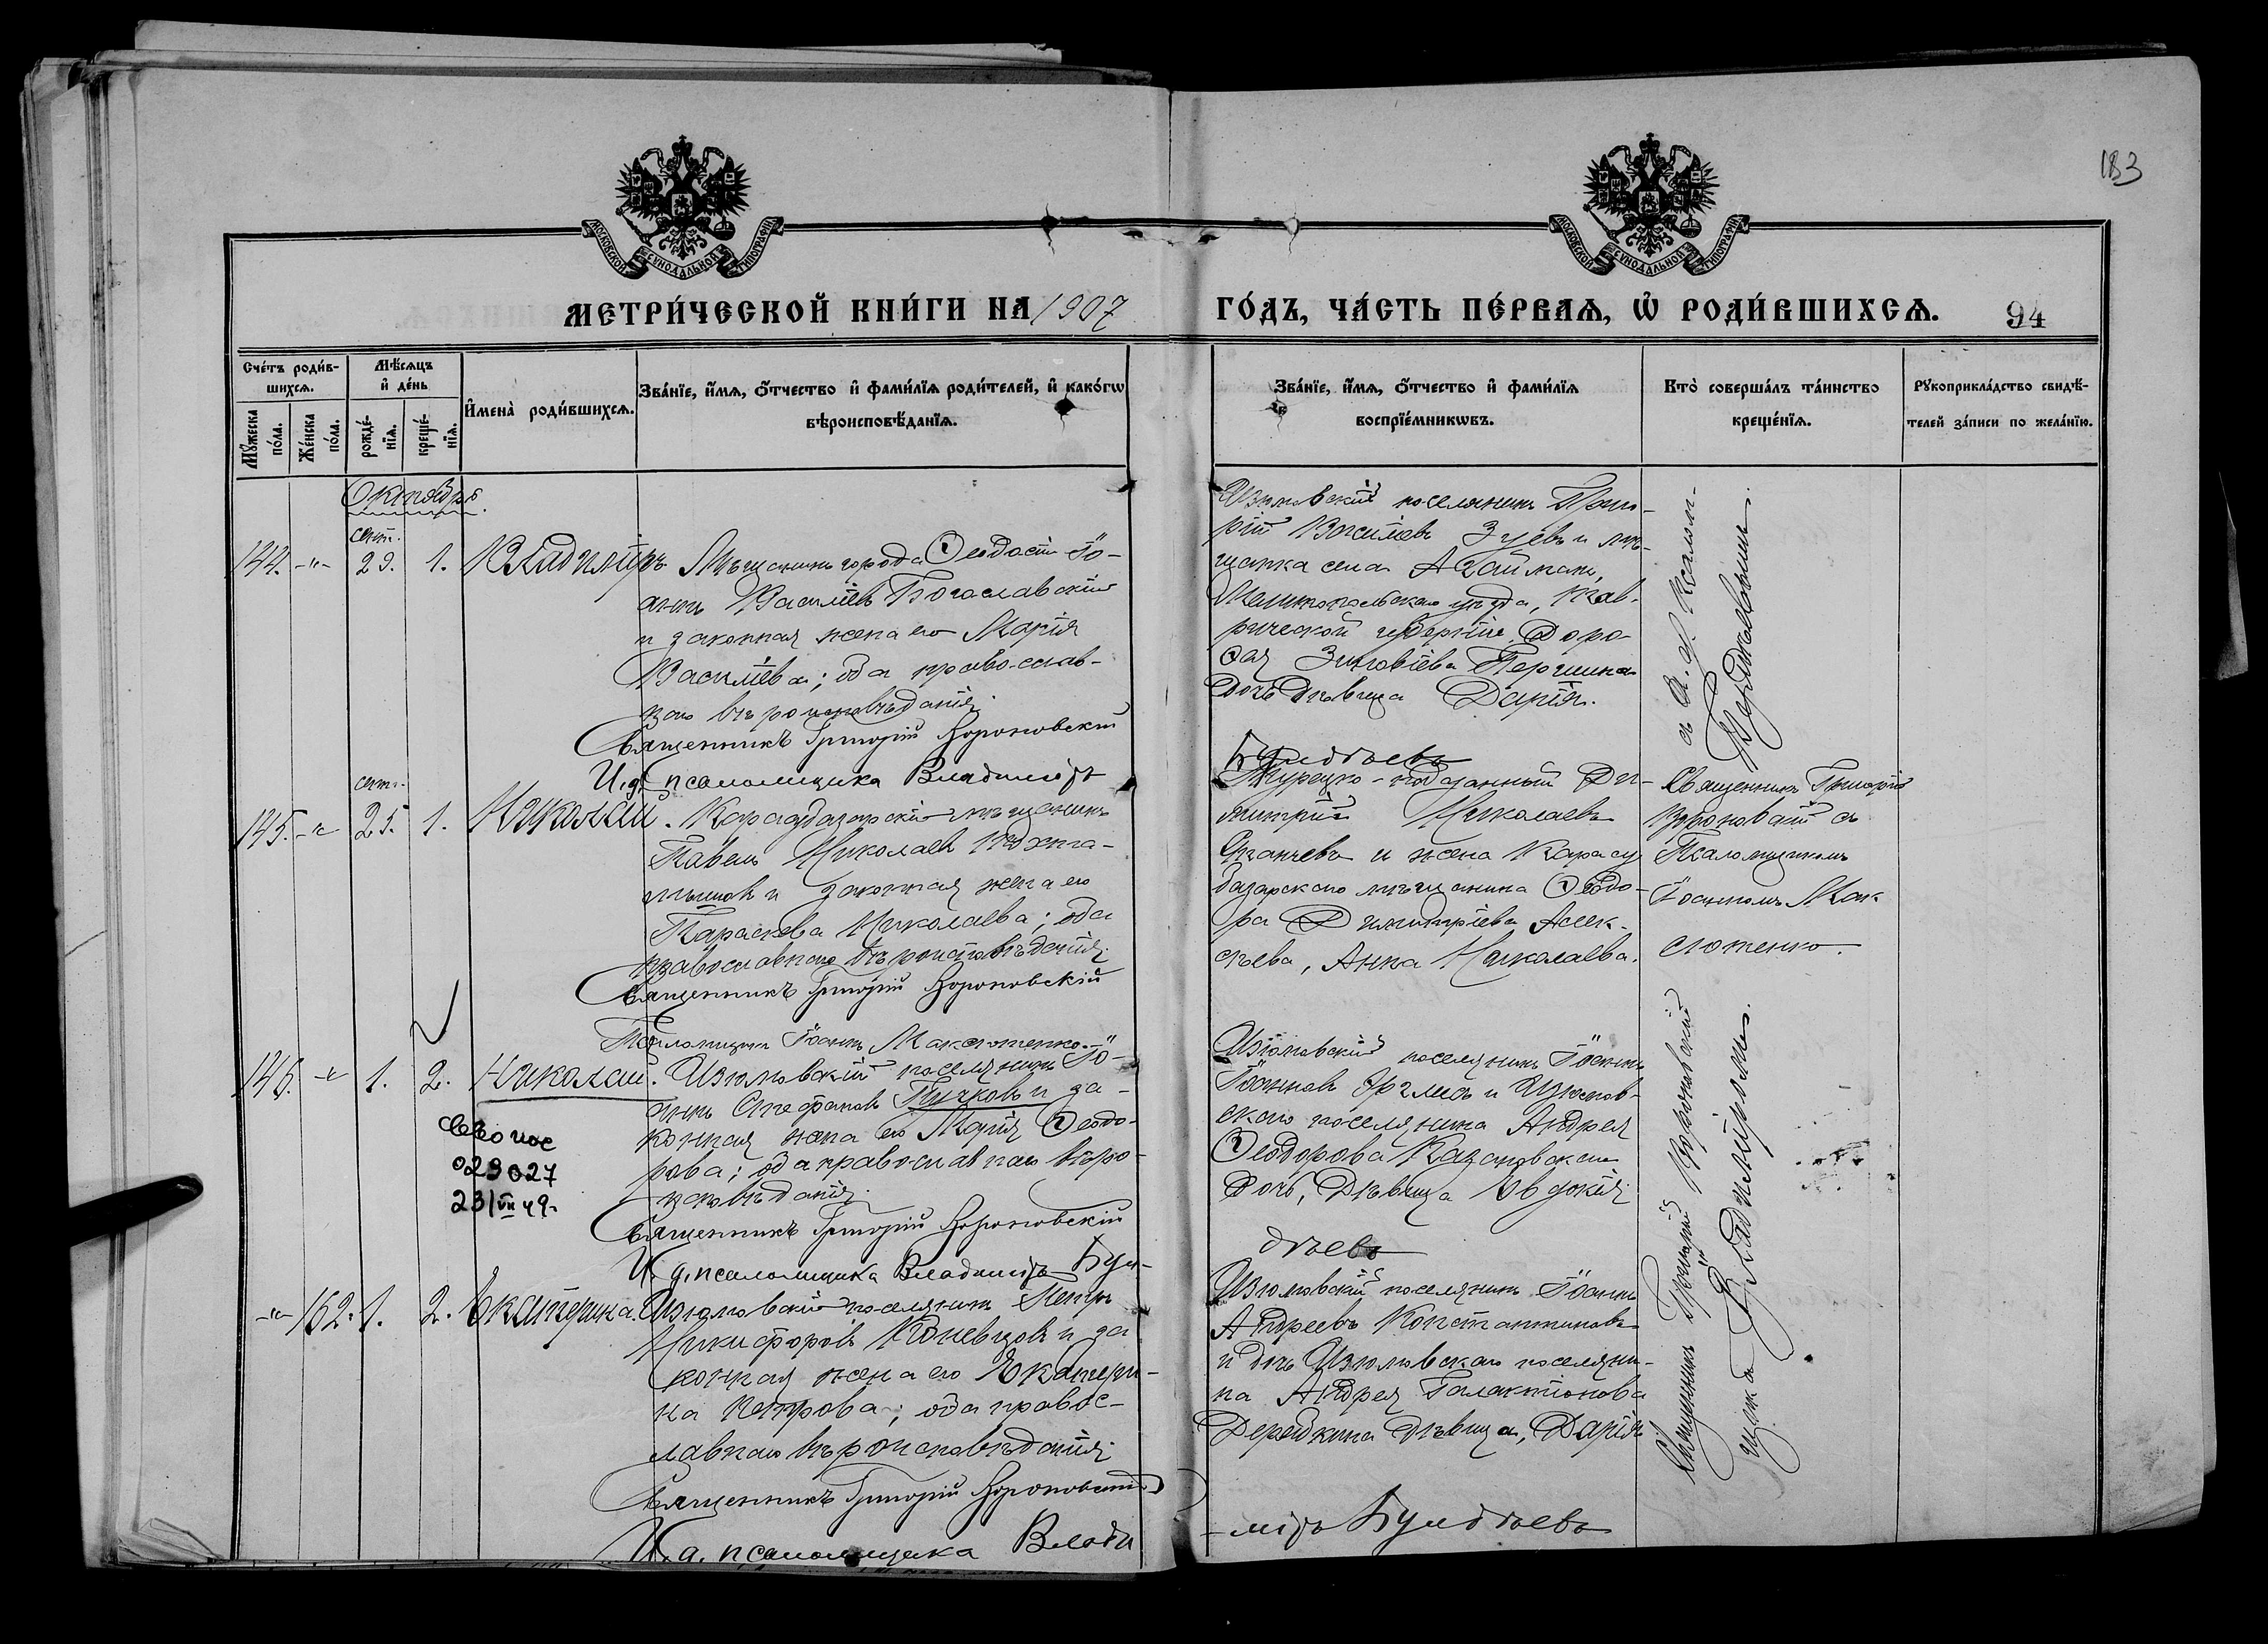 183
МОСКОВСКОЙ СѴНОДАЛЬНОЙ ТИПОГРАФІИ
МОСКОВСКОЙ СѴНОДАЛЬНОЙ ТИПОГРАФІИ
МЕТРИ́ЧЕСКОЙ КНИ́ГИ НА 1907
ГО́ДЪ, ЧА́СТЬ ПЕ́РВАѦ, Ѡ҆ РОДИ́ВШИХСѦ. 94
Сче́тъ роди́в-
шихсѧ.
Мꙋ́жеска
по́ла.
Же́нска
по́ла.
Мѣ́сѧцъ
и҆ де́нь
рожде́-
нїѧ.
креще́-
нїѧ.
И҆мена̀ роди́вшихсѧ.
Зва́нїе, и҆́мѧ, ѻ҆́тчество и҆ фами́лїѧ роди́телей, и҆ како́гѡ
вѣроисповѣ́данїѧ.
Зва́нїе, и҆́мѧ, ѻ҆́тчество и҆ фами́лїѧ
воспрїе́мникѡвъ.
Кто̀ соверша́лъ та́инство
креще́нїѧ.
Рꙋкоприкла́дство свидѣ́-
телей за́писи по жела́нїю.
Октябрь.
сент.
144. -"- 29. 1. Владиміръ.
Мѣщанинъ города Ѳеодосіи Іо-
аннъ Василіевъ Богославскій
и законная жена его Марія
Василіева; оба православ-
наго вѣроисповѣданія.
Священникъ Григорій Вороновскій
И. д. псаломщика Владиміръ
Бундѣевъ
Изюмовскій поселянинъ Григо-
рій Василіевъ Зуевъ и мѣ-
щанка села Агайманъ,
Мелитопольскаго уѣзда, Тав-
рической губерніи, Доро-
ѳея Зиновіева Першина
дочь дѣвица Дарія.
съ и. д. Псалом-
сент.
145. -"- 25. 1. Николай.
Карасубазарскій мѣщанинъ
Павелъ Николаевъ
и законная жена его
Параскева Николаева; оба
православнаго вѣроисповѣданія.
Священникъ Григорій Вороновскій
Псаломщикъ Іоаннъ Максютенко.
Турецко-подданный Ди-
митрій Николаевъ
и жена Карасу-
базарскаго мѣщанина Ѳеодо-
ра Димитріева Алек-
сѣева, Анна Николаева.
Священникъ Григорій
Вороновскій съ
Псаломщикомъ
Іоанномъ Мак-
сютенко.
146. -"- 1. 2. Николай.
029027
23/VII 49.
Изюмовскій поселянинъ Іо-
аннъ Стефановъ Пучковъ и за-
конная жена его Марія Ѳеодо-
рова; оба православнаго вѣро-
исповѣданія.
Священникъ Григорій Вороновскій
И. д. псаломщика Владиміръ Бун-
дѣевъ
Изюмовскій поселянинъ Іоаннъ
Іоанновъ и Изюмов-
скаго поселянина Андрея
Ѳеодорова Казановскаго
дочь, дѣвица Евдокія.
Священникъ Григорій Вороновскій
Владиміромъ
-"- 152. 1. 2. Екатерина.
Изюмовскій поселянинъ Петръ
Никифоровъ и за-
конная жена его Екатери-
на Петрова; оба правос-
лавнаго вѣроисповѣданія.
Священникъ Григорій Вороновскій
И. д. псаломщика Влади
-міръ Бундѣевъ
Изюмовскій поселянинъ Іоаннъ
Андреевъ Константиновъ
и дочь Изюмовскаго поселяни-
на Андрея Галактіонова
дѣвица, Дарія.